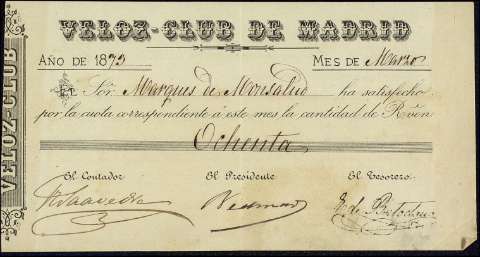 VELOZ-CLUB DE MADRID
VELOZ-CLUB
AÑO DE 1873 MES DE Marzo
El Sór Marques de Monsalud ha satisfecho
por la cuota correspondiente á este mes la cantidad de Rvn
Ochenta
El Contador El Presidente El Tesorero